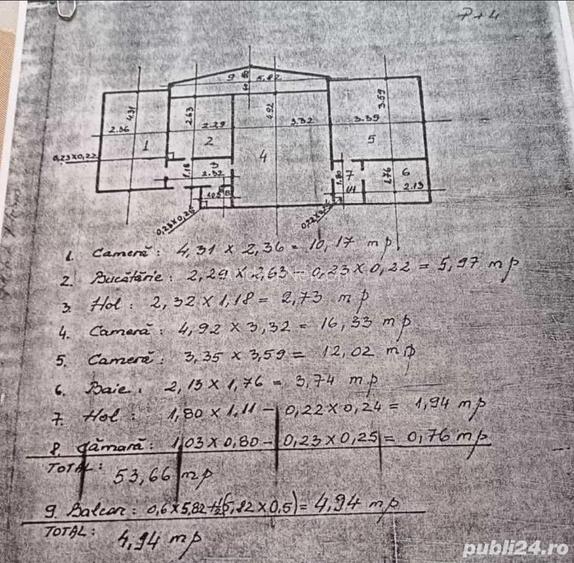 P+4
9 5,82
4,31
2,63
4,92
3,59
2.36
2.29
3.32
3.39
1
2
4
5
0,23x0,22
1,18
3
2.32
7
1,80
1,76
6
2.13
0,23x0,25
0,22x0,24
1. Cameră: 4,31 x 2,36 = 10,17 mp
2. Bucătărie: 2,29 x 2,63 - 0,23 x 0,22 = 5,97 mp
3. Hol: 2,32 x 1,18 = 2,73 mp
4. Cameră: 4,92 x 3,32 = 16,33 mp
5. Cameră: 3,35 x 3,59 = 12,02 mp
6. Baie: 2,13 x 1,76 = 3,74 mp
7. Hol: 1,80 x 1,11 - 0,22 x 0,24 = 1,94 mp
8. Cămară: 1,03 x 0,80 - 0,23 x 0,25 = 0,76 mp
TOTAL:
53,66 mp
9. Balcon: 0,6 x 5,82 + ½(5,82 x 0,5) = 4,94 mp
TOTAL:
4,94 mp
publi24.ro